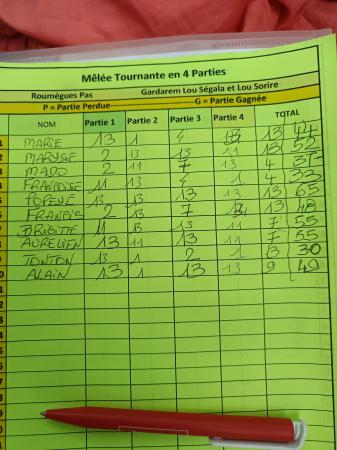 Mêlée Tournante en 4 Parties
Roumégues Pas Gardarem Lou Ségala et Lou Sorire
P = Partie Perdue------------------------G = Partie Gagnée
NOM Partie 1 Partie 2 Partie 3 Partie 4 TOTAL
MARIE 13 1 4 13 13 44
MARYSE 2 13 13 11 13 52
MADO 2 11 7 13 4 37
FRANÇOISE 11 13 4 1 4 33
POPEYE 13 13 13 13 13 65
FRANCIS 2 13 7 13 13 48
BRIGITTE 11 13 13 11 7 55
AURELIEN 13 11 13 11 7 55
TONTON 13 1 2 1 13 30
ALAIN 13 1 13 13 9 49